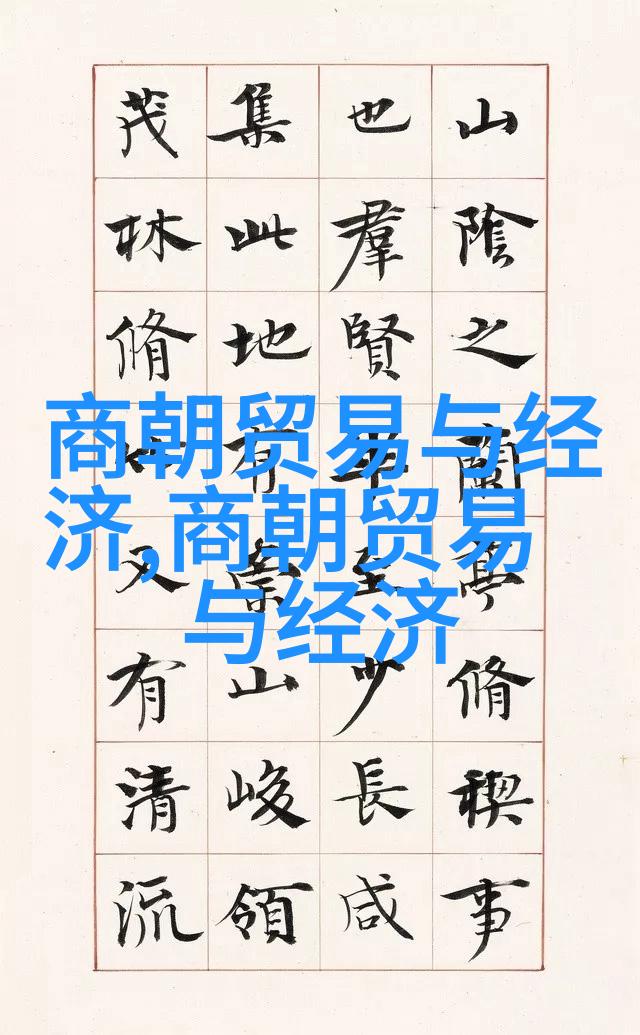 山陰之蘭亭脩稧事
也羣賢畢至少長咸
集此地有崇山峻領
茂林脩竹又有清流
商朝贸易与经
济,商朝贸易
与经济